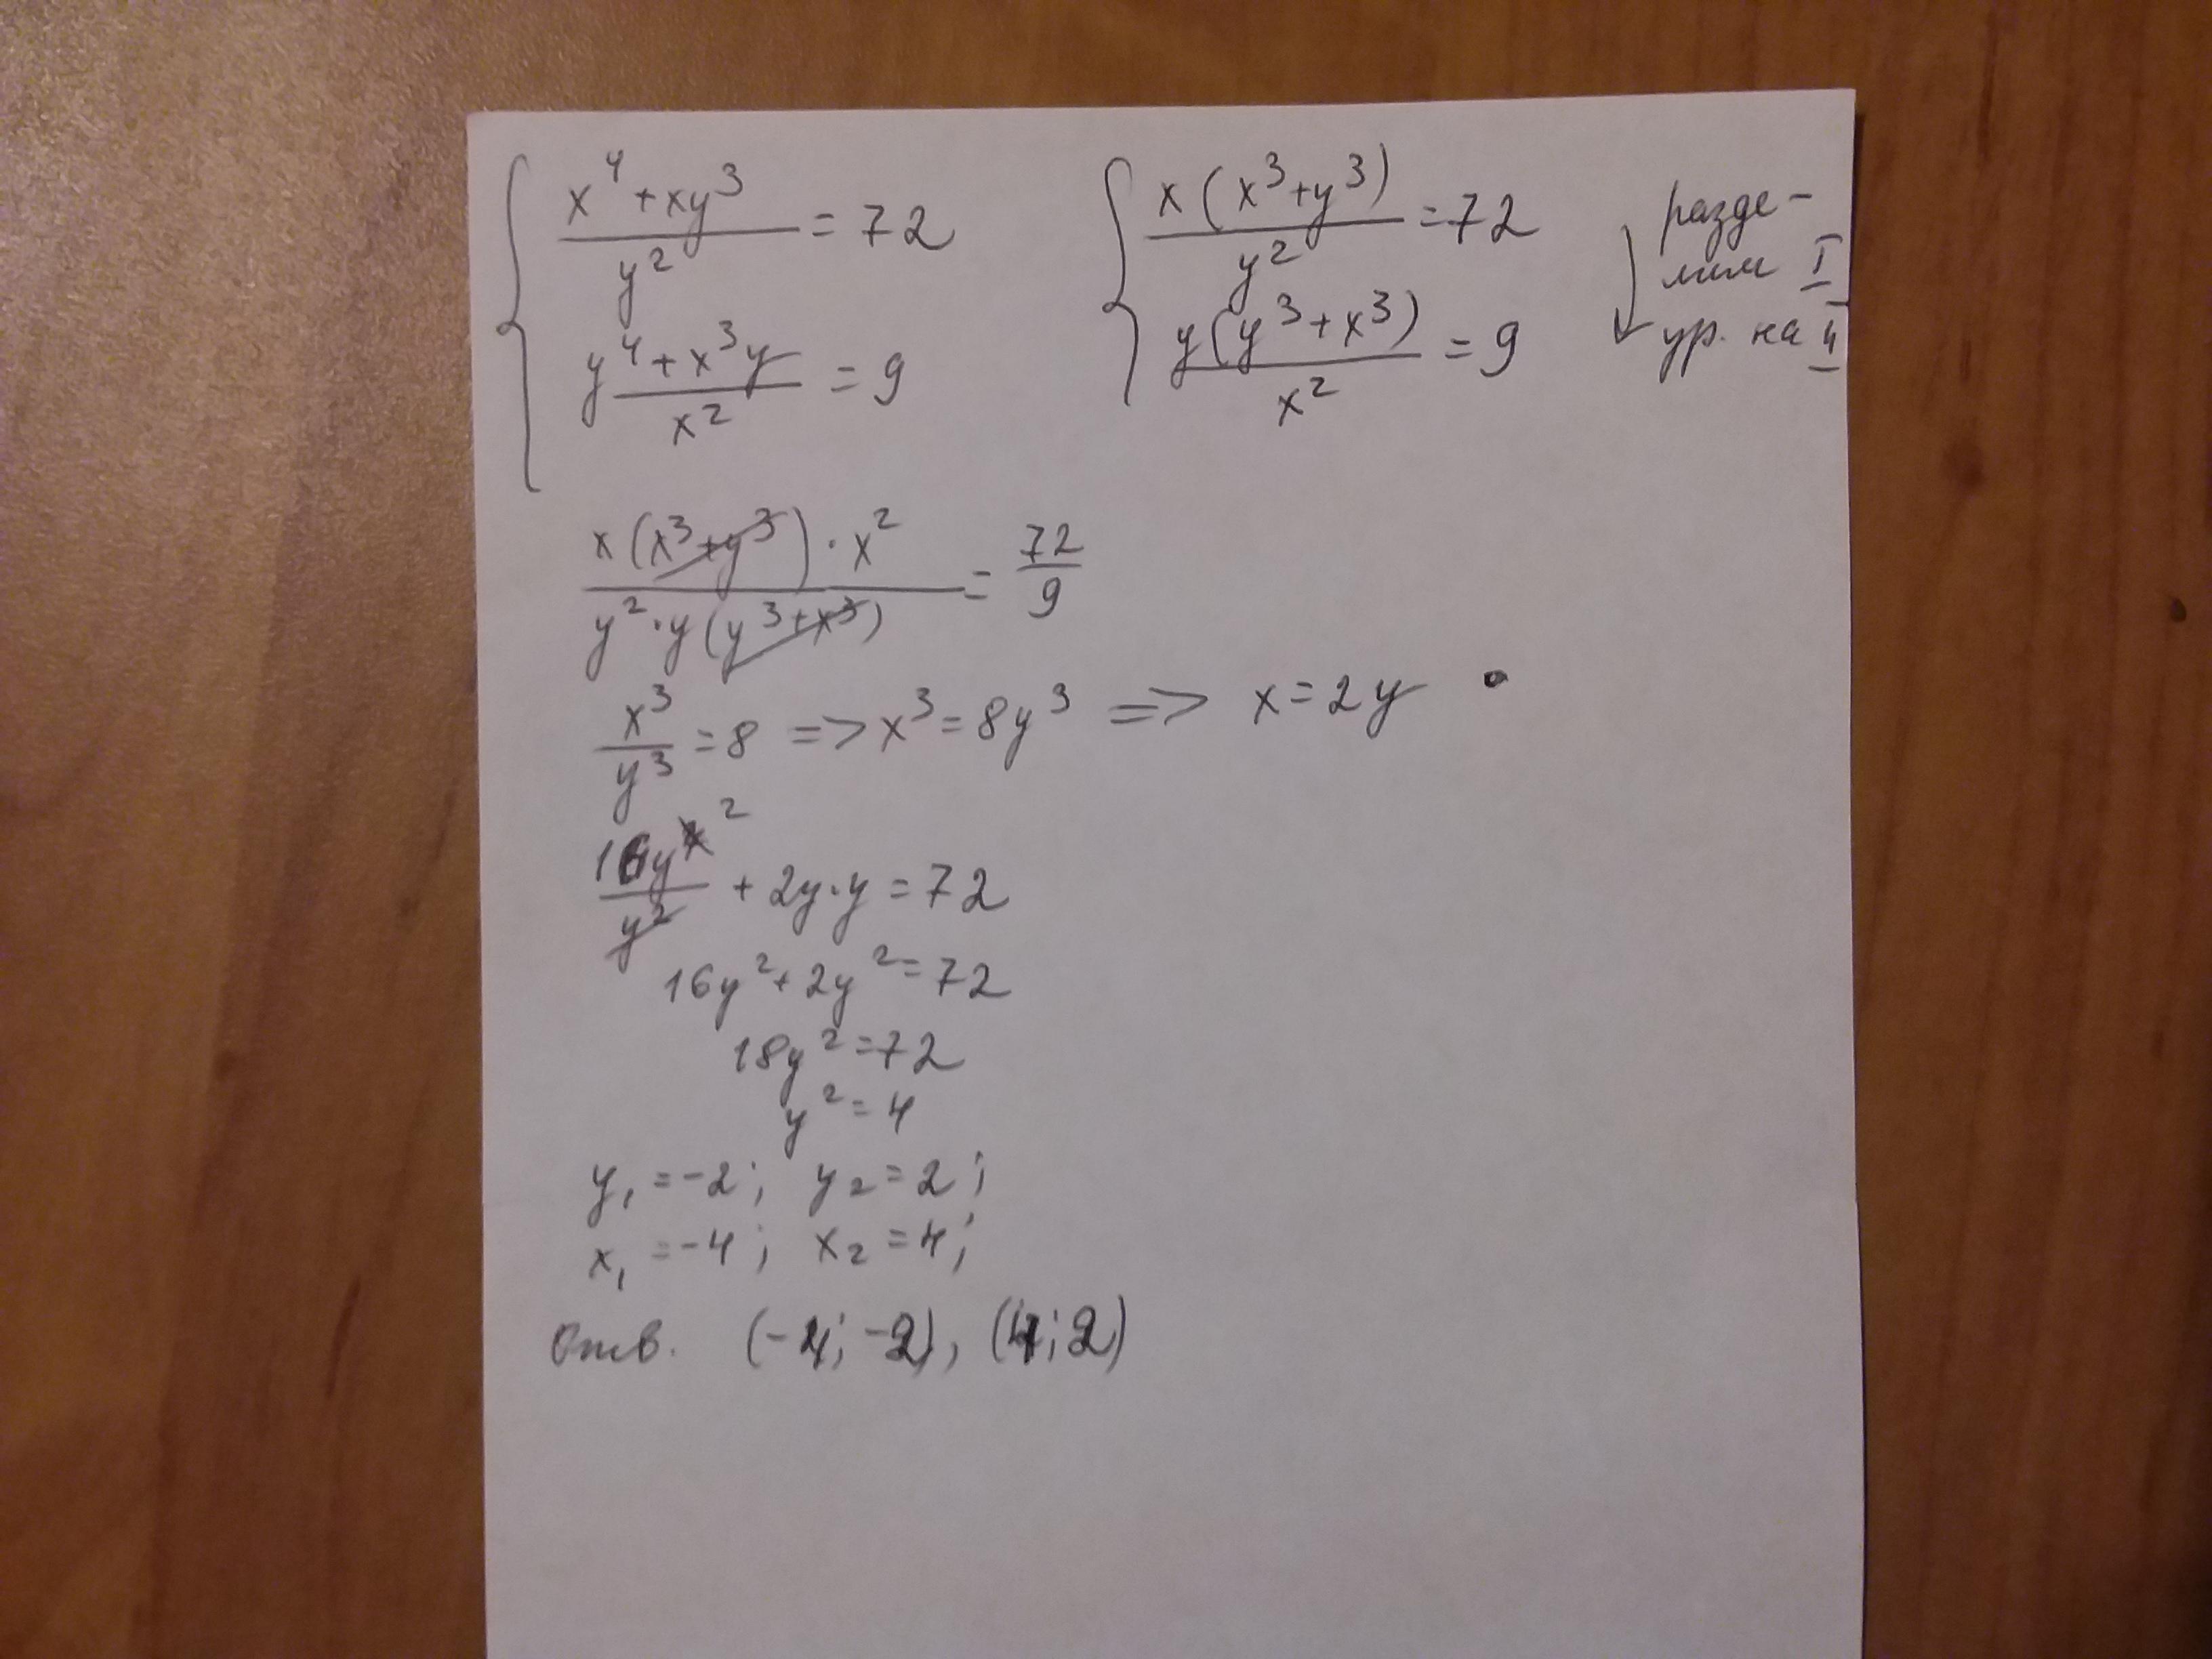 x⁴+xy³ / y² = 72
y⁴+x³y / x² = 9
x(x³+y³) / y² = 72
y(y³+x³) / x² = 9
разде-
лим I
ур. на II
x(x³+y³)·x² / y²·y(y³+x³) = 72 / 9
x³ / y³ = 8 => x³ = 8y³ => x = 2y
16y⁴ ² / y² + 2y·y = 72
16y² + 2y² = 72
18y² = 72
y² = 4
y₁ = -2; y₂ = 2;
x₁ = -4; x₂ = 4;
Отв. (-4; -2), (4; 2)